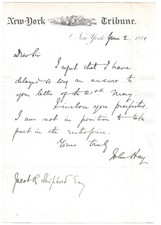 New-York Tribune.
New York June 2, 1881
Dear Sir
I regret that I have
delayed so long an answer to
your letter of the 20th May.
I inclose your prospectus.
I am not in position to take
part in the enterprise.
Yours truly
John Hay
Jacob R. Shipherd Esq